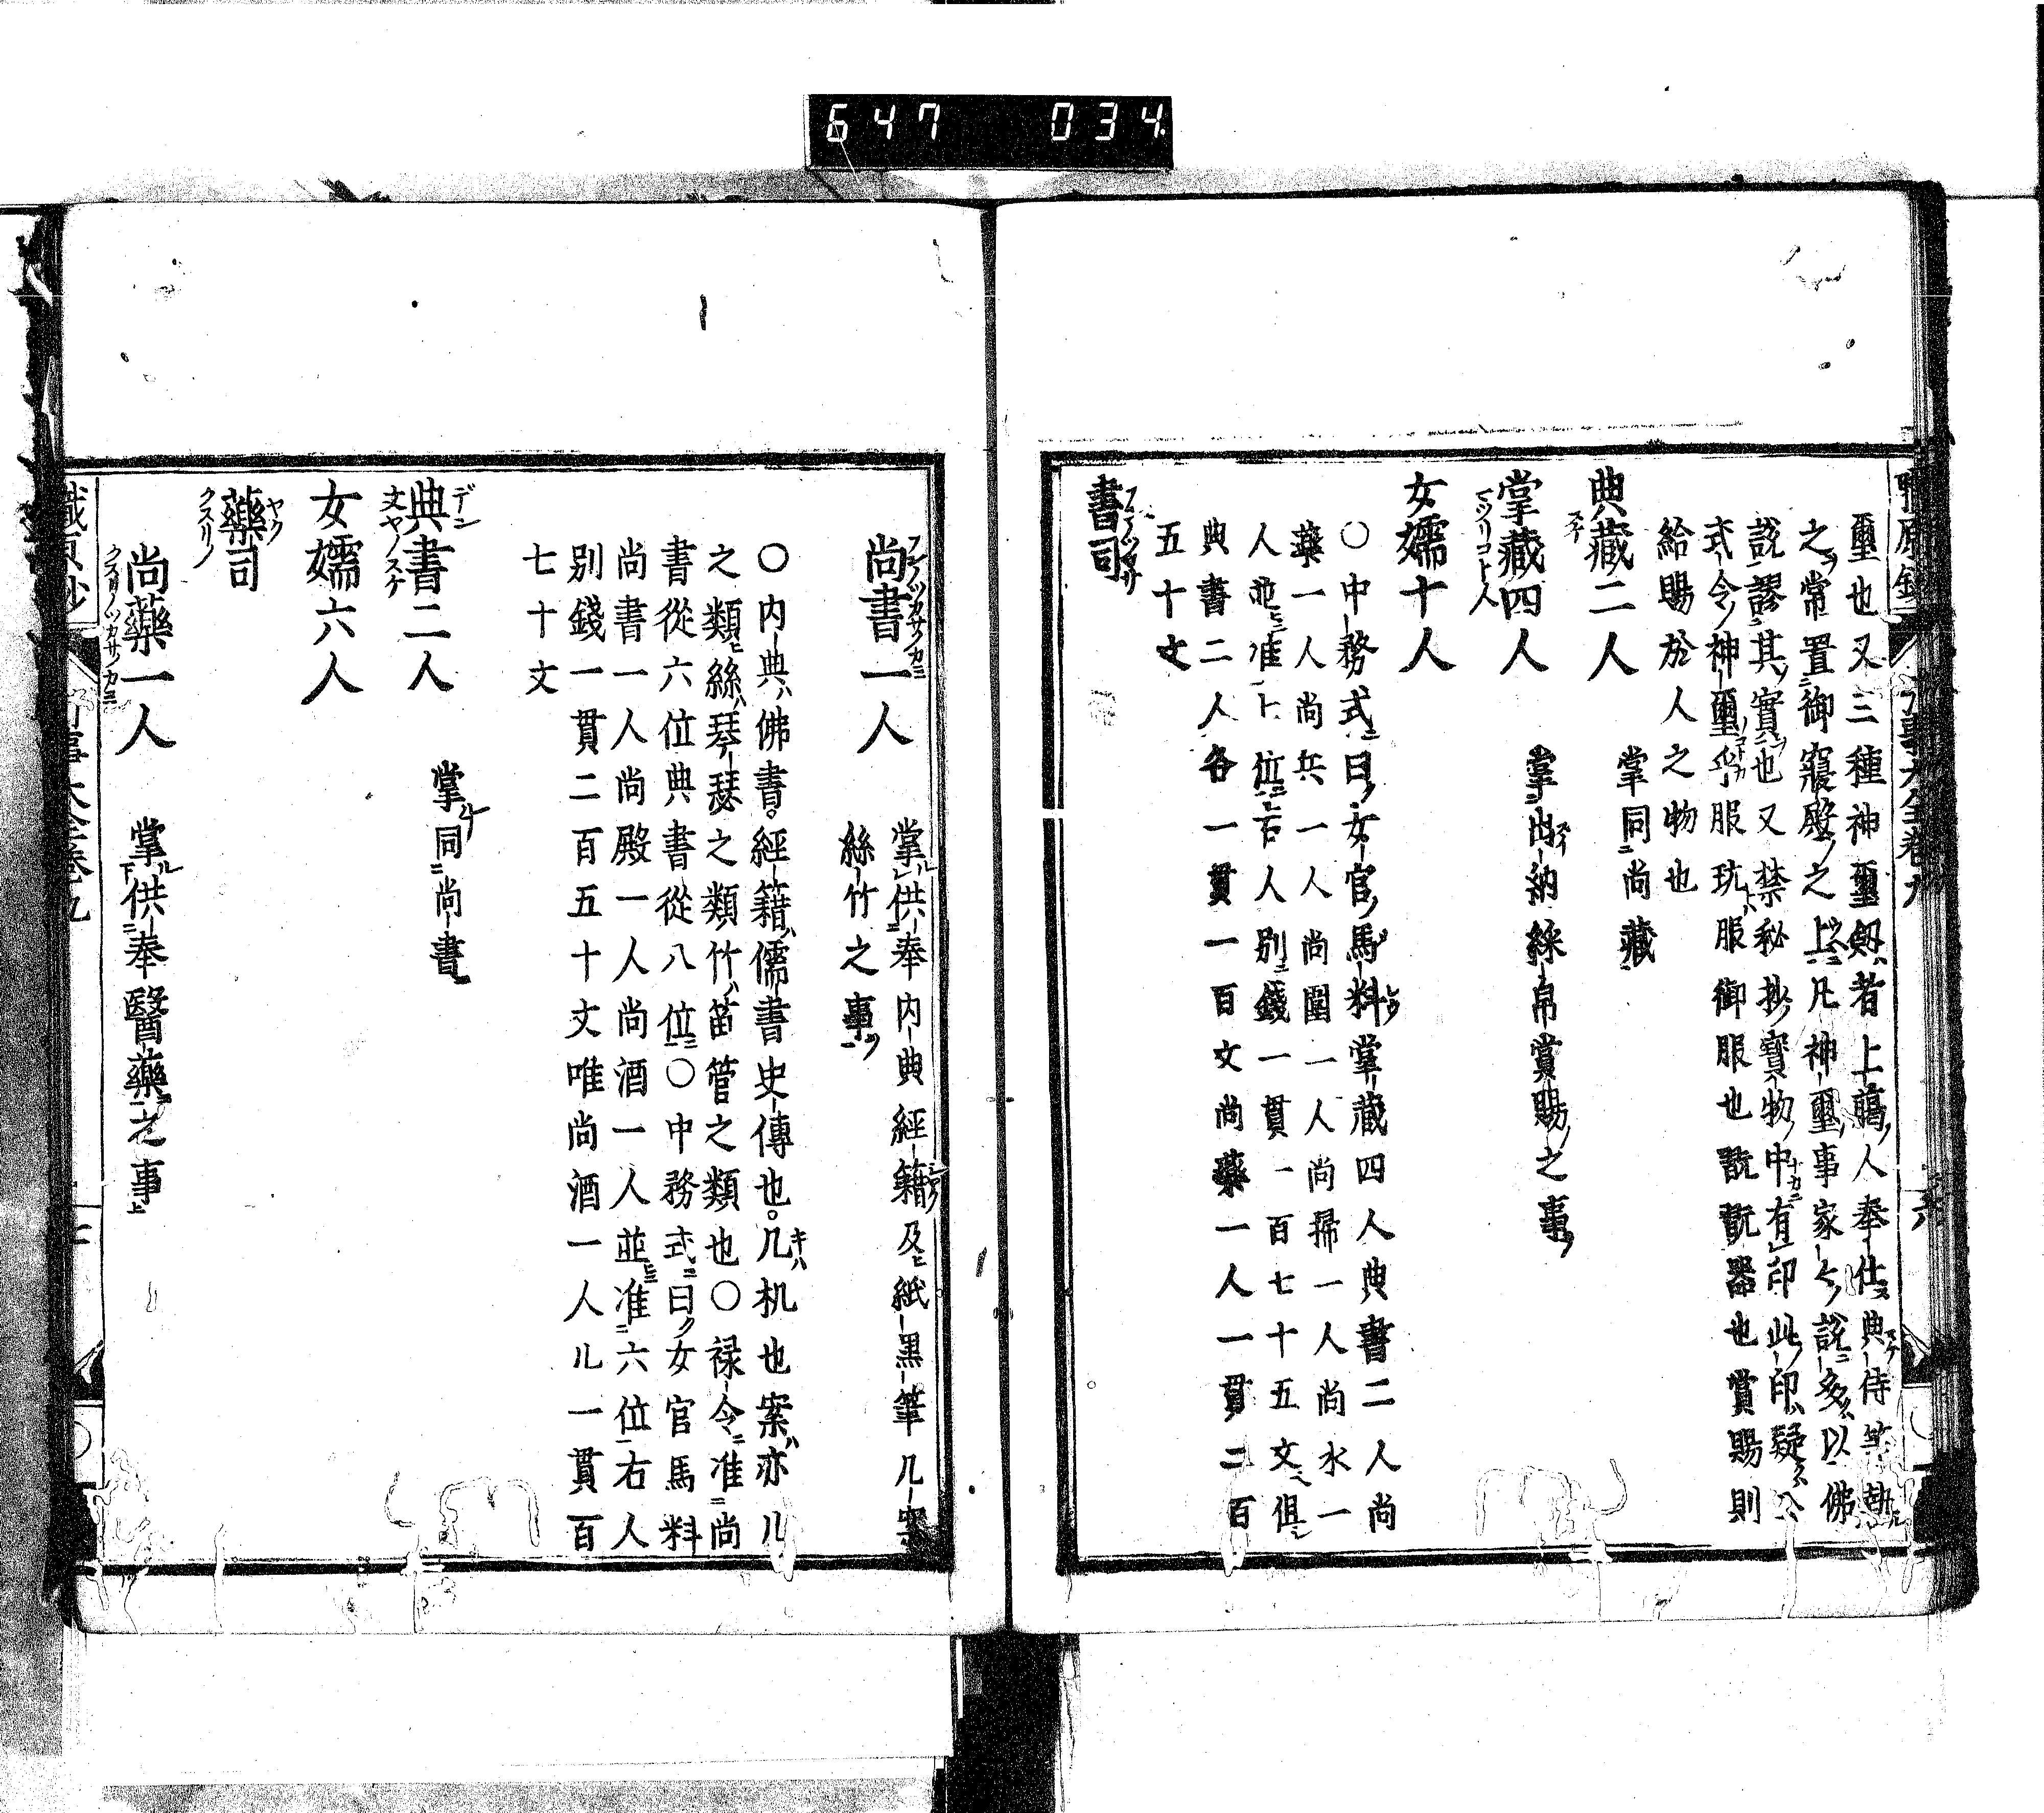 647 034
璽也又三種神璽劔者上﨟人奉仕典侍等執
之常置御寢殿之上凡神璽事家々説多以佛
説謬其實也又禁秘抄寳物中有印此印疑公
式令神璽乎服玩服御服也翫翫器也賞賜則
給賜於人之物也
典藏二人 掌同尚藏
掌藏四人 掌出納綵帛賞賜之事
女嬬十人
〇中務式曰女官馬料掌藏四人典書二人尚
藥一人尚兵一人尚闈一人尚掃一人尚水一
人並准上位右人別錢一貫一百七十五文俱
典書二人各一貫一百文尚藥一人一貫二百
五十文
書司
尚書一人 掌供奉内典經籍及紙黒筆几案
絲竹之事
〇内典佛書經籍儒書史傳也几机也案亦几
之類絲琴瑟之類竹笛管之類也〇禄令准尚
書從六位典書從八位〇中務式曰女官馬料
尚書一人尚殿一人尚酒一人並准六位右人
別錢一貫二百五十文唯尚酒一人ル一貫百
七十文
典書二人 掌同尚書
女嬬六人
藥司
尚藥一人 掌供奉醫藥之事